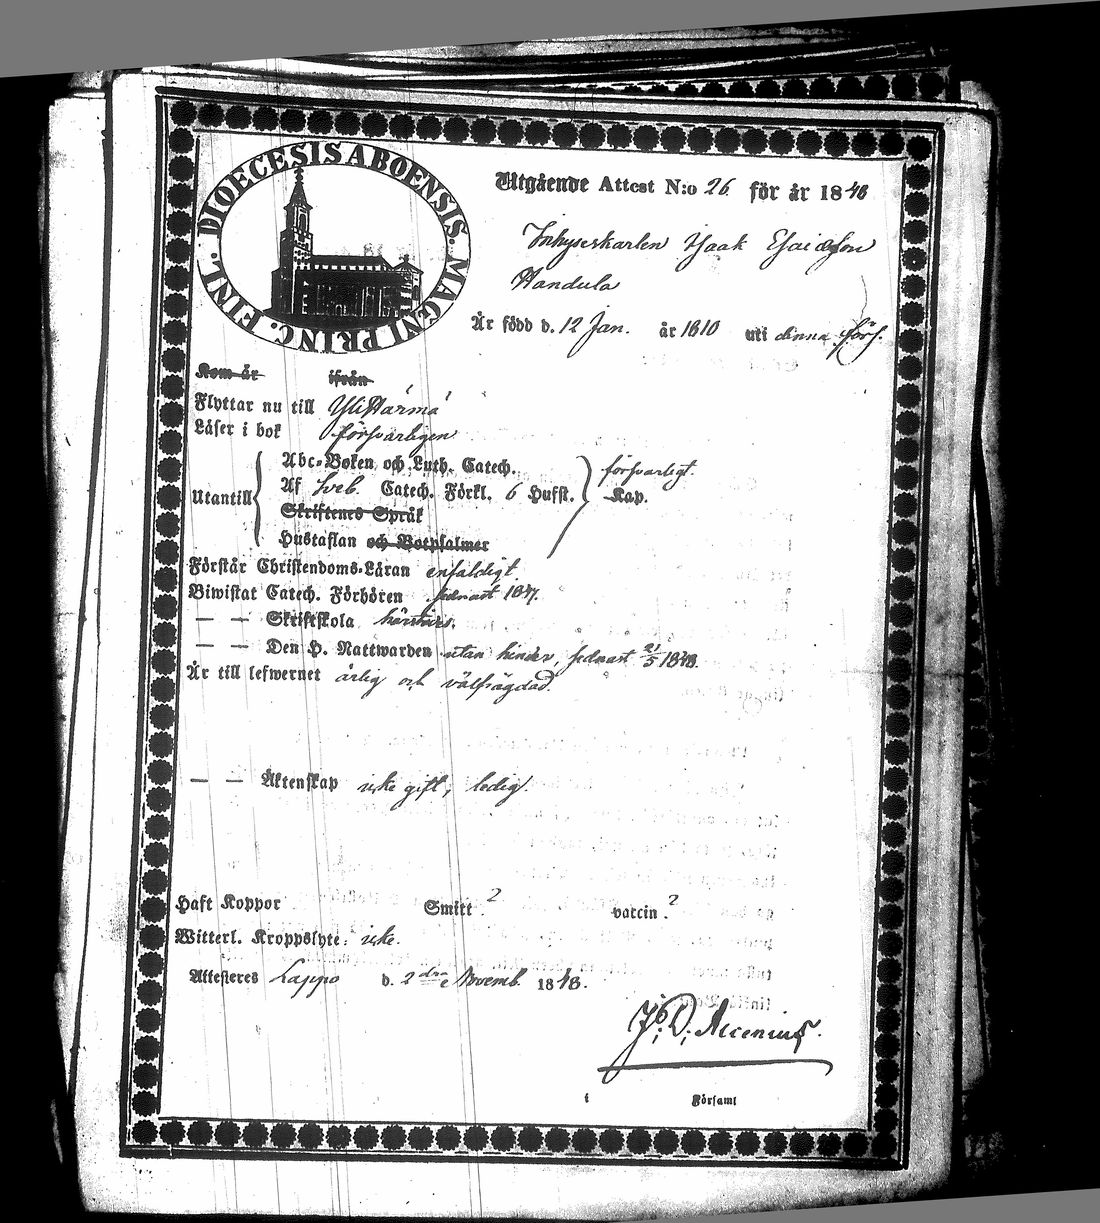 DIOECESIS ABOENSIS. MAGNI PRINC. FINL.
Utgående Attest N:o 26 för år 1848
Inhyseskarlen Isaak Esaiasson
Handula
Är född d. 12 Jan. år 1810 uti denna förs.
Kom år ifrån
Flyttar nu till Ylihärmä
Läser i bok försvarligen
Utantill
Abc-Boken och Luth. Catech. försvarligt.
Af Sveb. Catech. Förkl. 6 Hufst. Kap.
Skriftenes Språk
Hustaflan och Botpsalmer
Förstår Christendoms-Läran enfaldigt.
Biwistat Catech. Förhören sednast 1847.
— — Skriftskola härstäds.
— — Den H. Nattwarden utan hinder, sednast 21/5 1848.
Är till lefwernet ärlig och välfrägdad.
— — Äktenskap icke gift, ledig.
Haft Koppor Smitt ? vaccin. ?
Witterl. Kroppslyte: icke.
Attesteres Lappo d. 2dre Novemb. 1848.
J. D. Alcenius.
i Församl